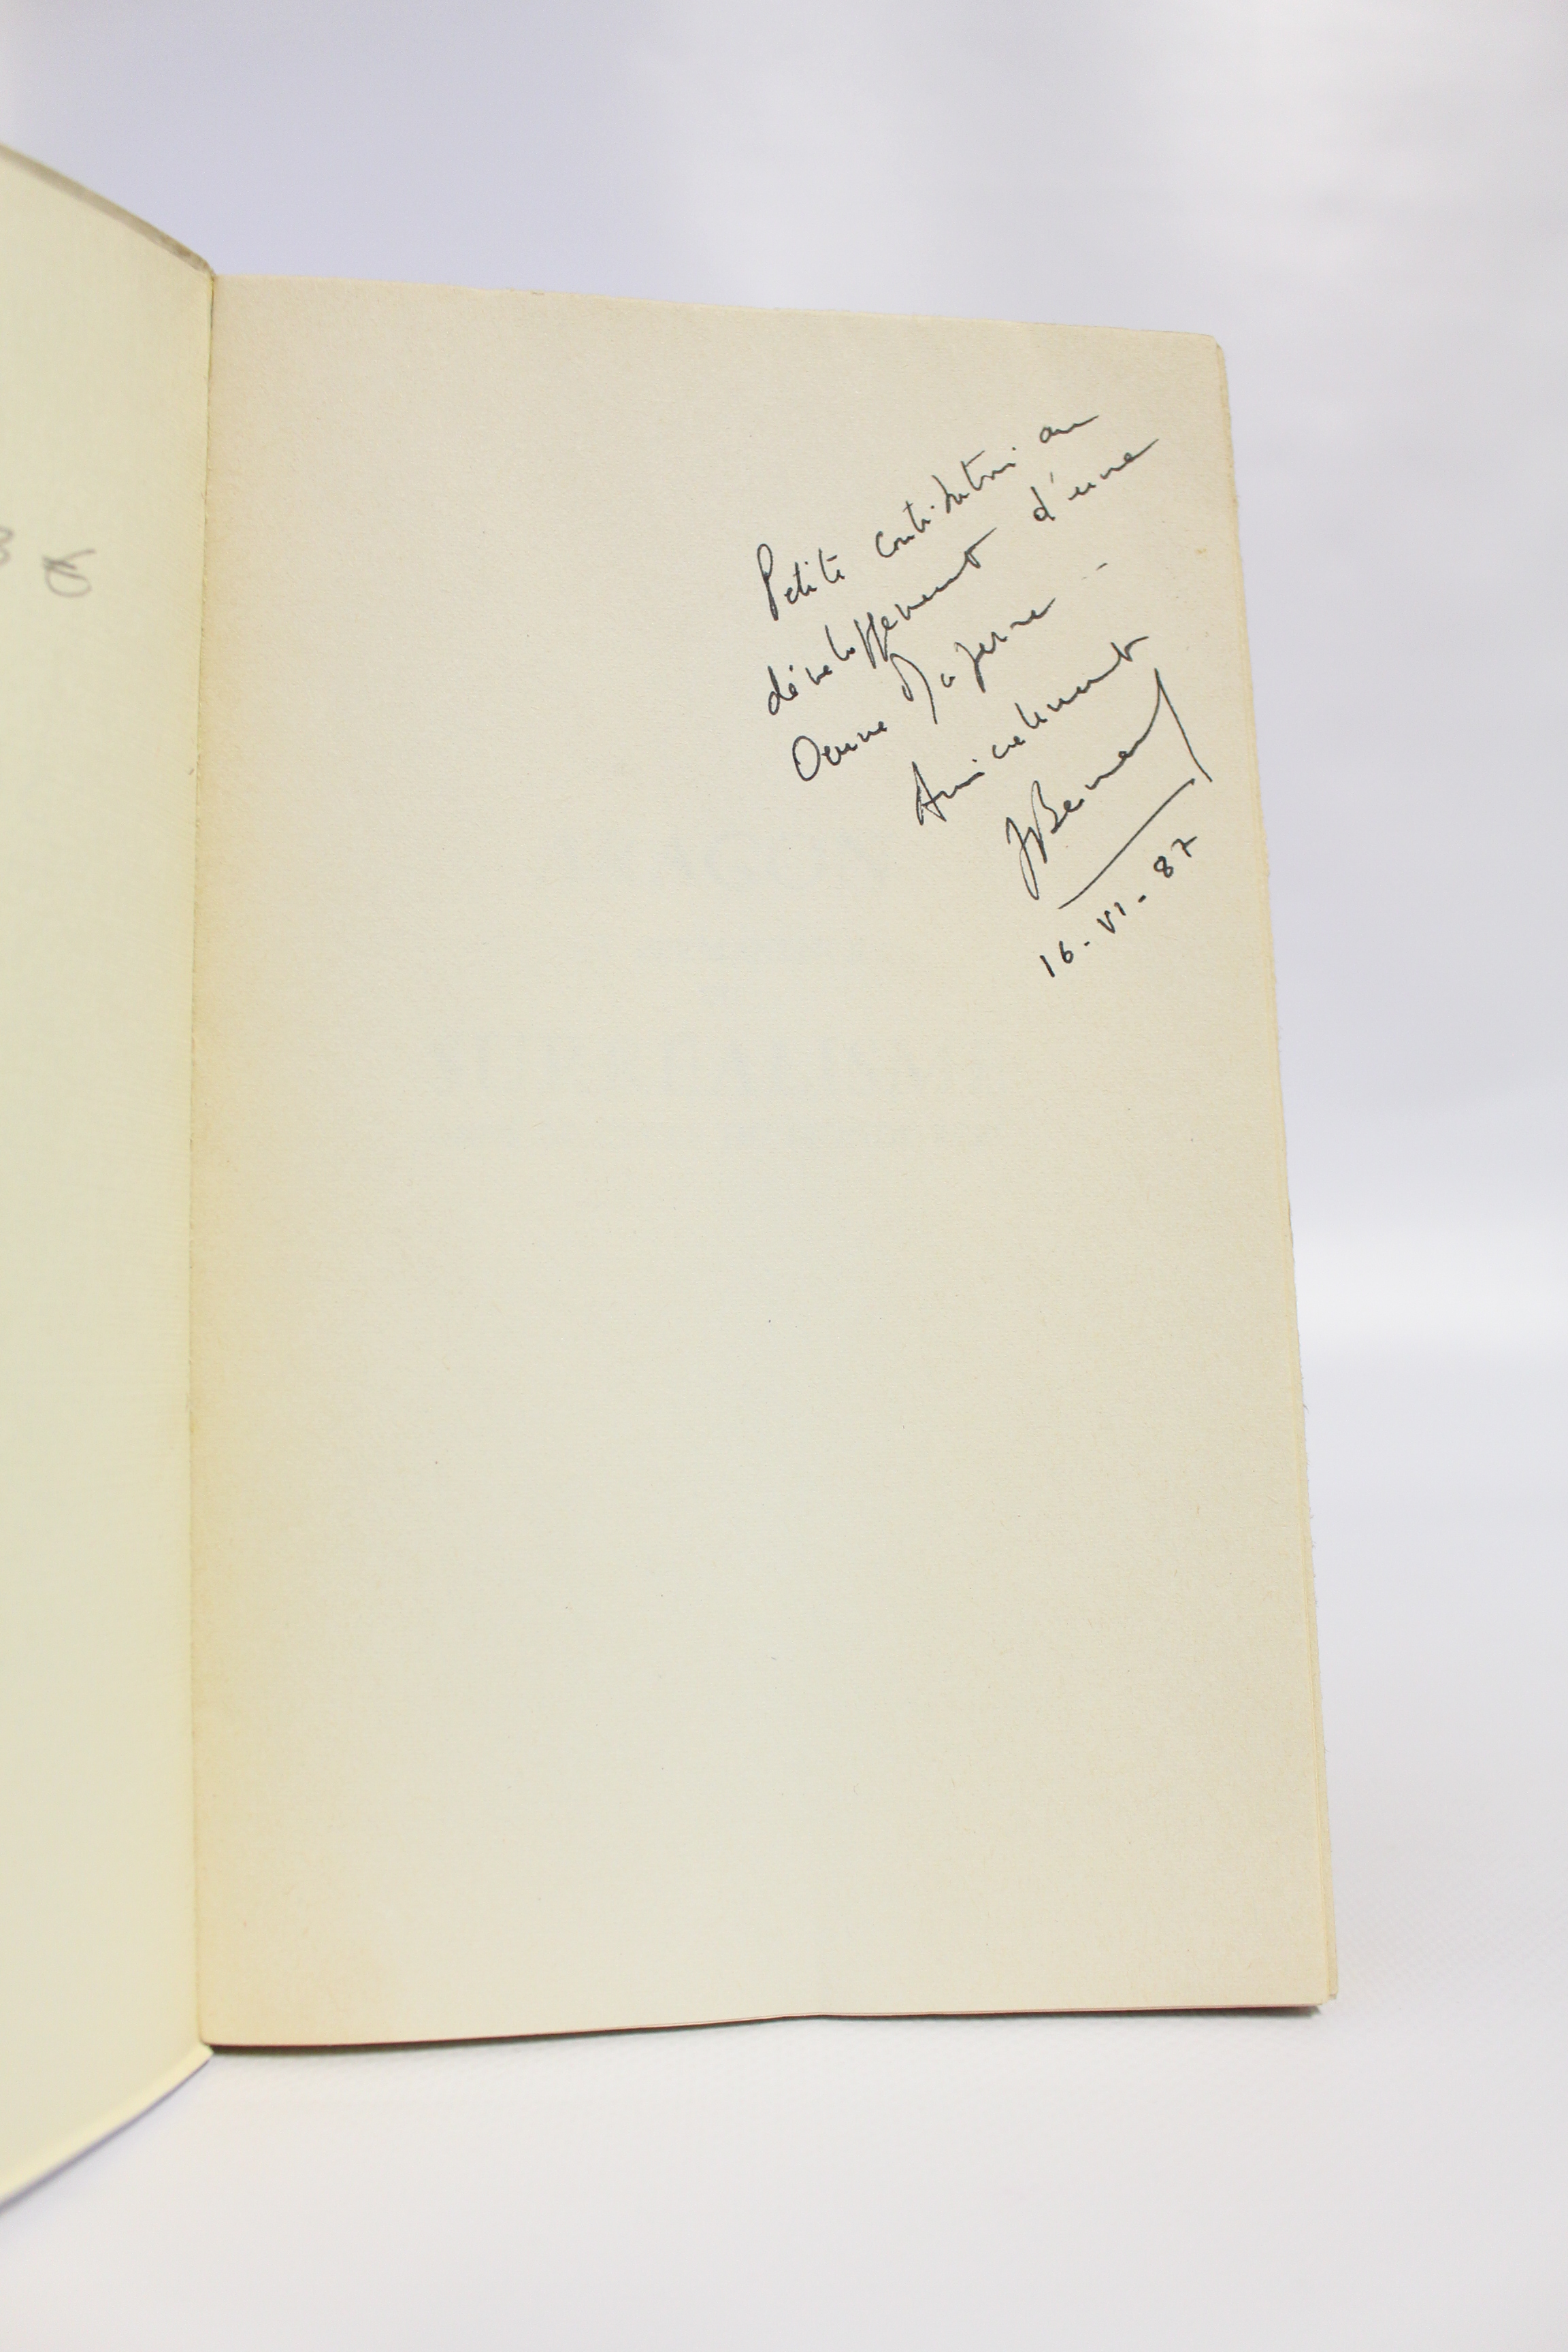 Petite contribution au
développement d'une
Oeuvre Majeure...
Amicalement
16-VI-87